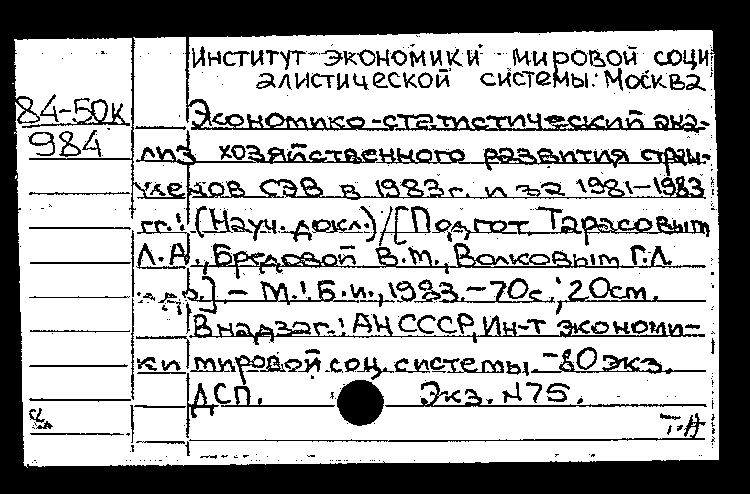 Институт экономики мировой соци
алистической системы. Москва
84-50к
984
Экономико-статистический ана-
лиз хозяйственного развития стран-
членов СЭВ в 1983г. и за 1981-1983
гг.: (Науч. докл.)/[Подгот. Тарасовым
Л.А., Бредовой В.М., Волковым Г.Л.
и др.] - М.: Б.и., 1983. - 70с.; 20см.
В надзаг.: АН СССР, Ин-т экономи-
ки мировой соц. системы. - 80 экз.
ДСП. Экз. N75.
Т.А